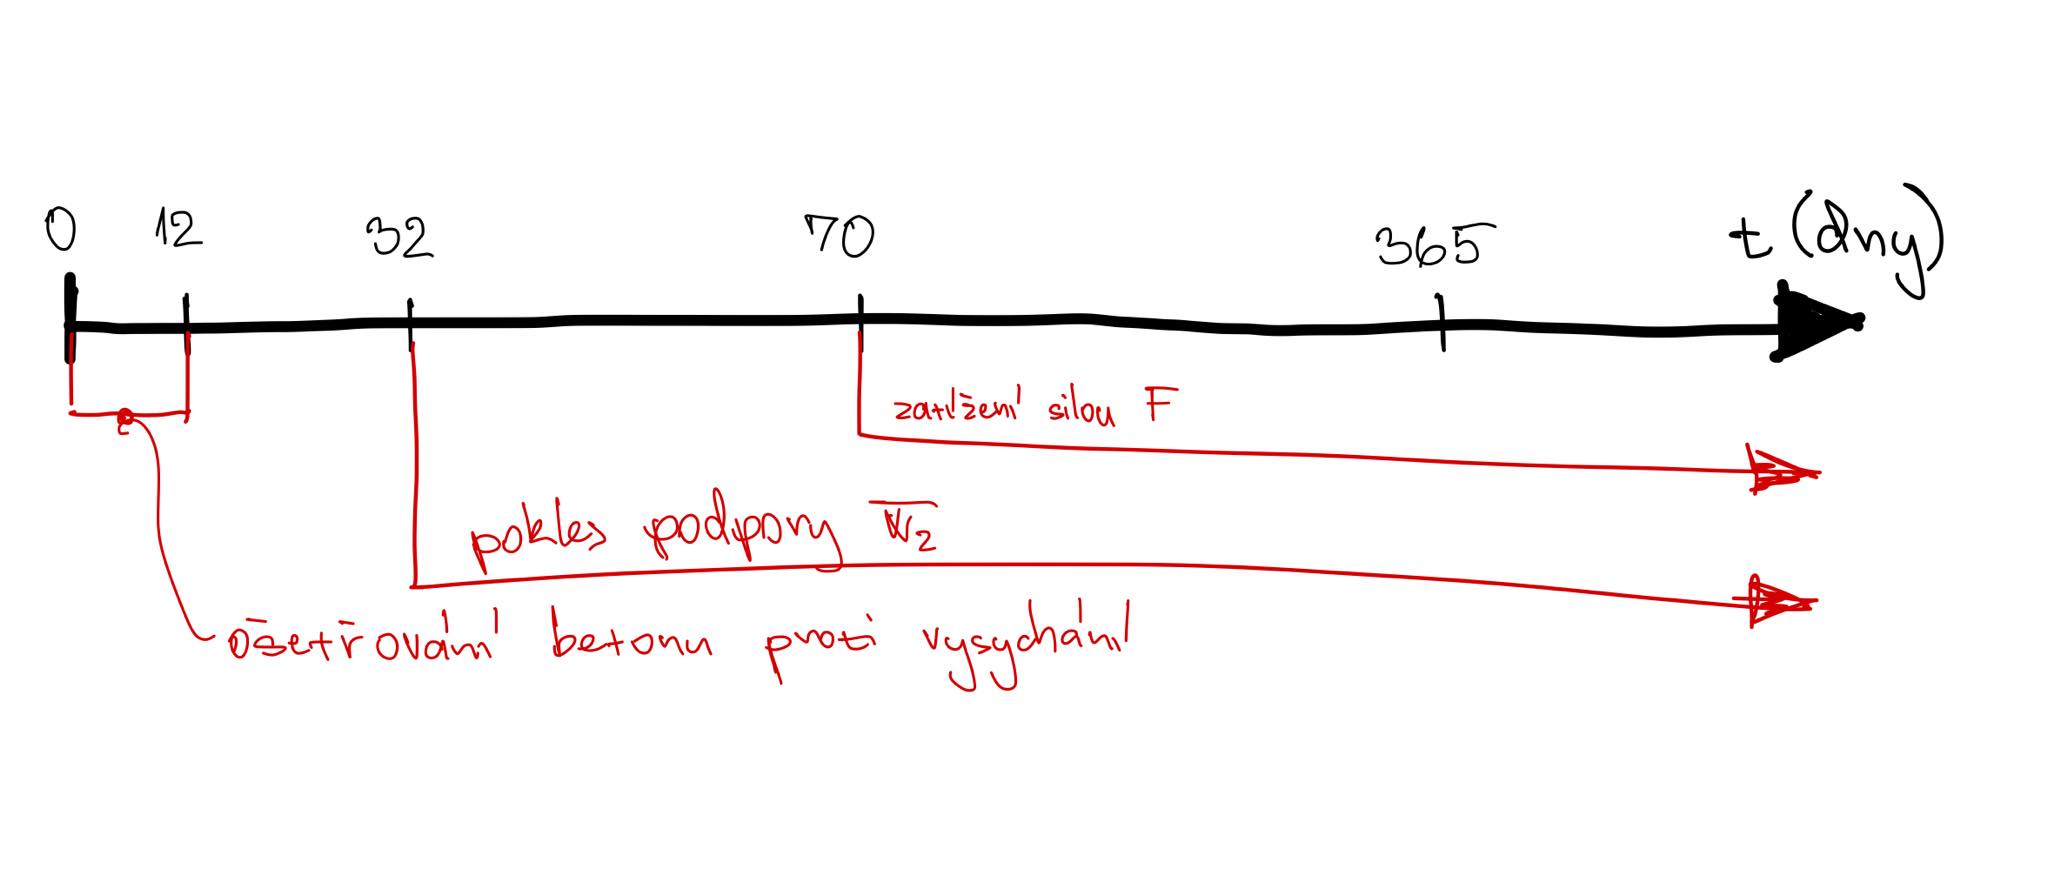 0 12 32 70 365 t (dny)
zatížení silou F
pokles podpory w̅₂
ošetřování betonu proti vysychání